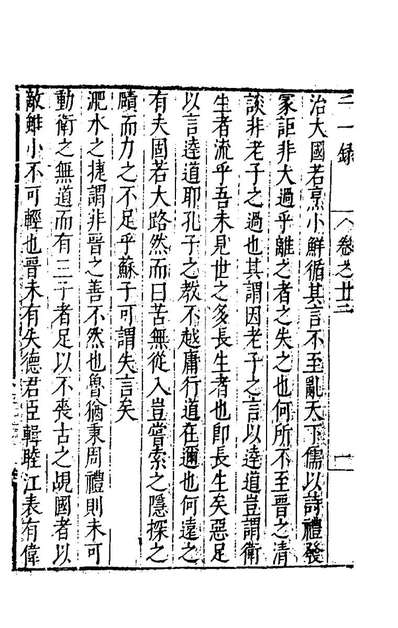 二一錄 卷之廿三 一
治大國若烹小鮮循其言不至亂天下儒以詩禮發
冢詎非大過乎離之者之失之也何所不至晉之清
談非老子之過也其謂因老子之言以逹道豈謂衛
生者流乎吾未見世之多長生者也即長生矣惡足
以言逹道耶孔子之教不越庸行道在邇也何遠之
有夫固若大路然而曰苦無從入豈嘗索之隱探之
賾而力之不足乎蘇子可謂失言矣
淝水之捷謂非晉之善不然也魯猶秉周禮則未可
動衛之無道而有三子者足以不喪古之覘國者以
敵雖小不可輕也晉未有失德君臣輯睦江表有偉